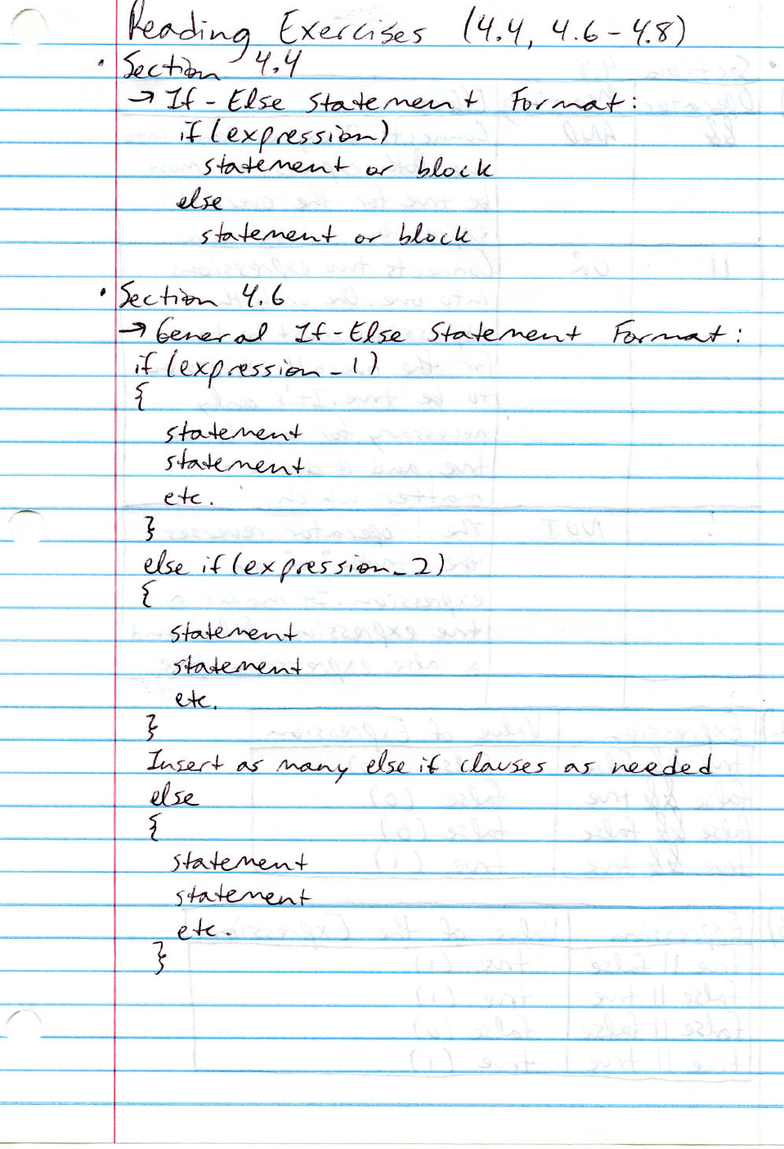 Reading Exercises (4.4, 4.6-4.8)
• Section 4.4
→ If-Else Statement Format:
if (expression)
statement or block
else
statement or block
• Section 4.6
→ General If-Else Statement Format:
if (expression_1)
{
statement
statement
etc.
}
else if (expression_2)
{
statement
statement
etc.
}
Insert as many else if clauses as needed
else
{
statement
statement
etc.
}